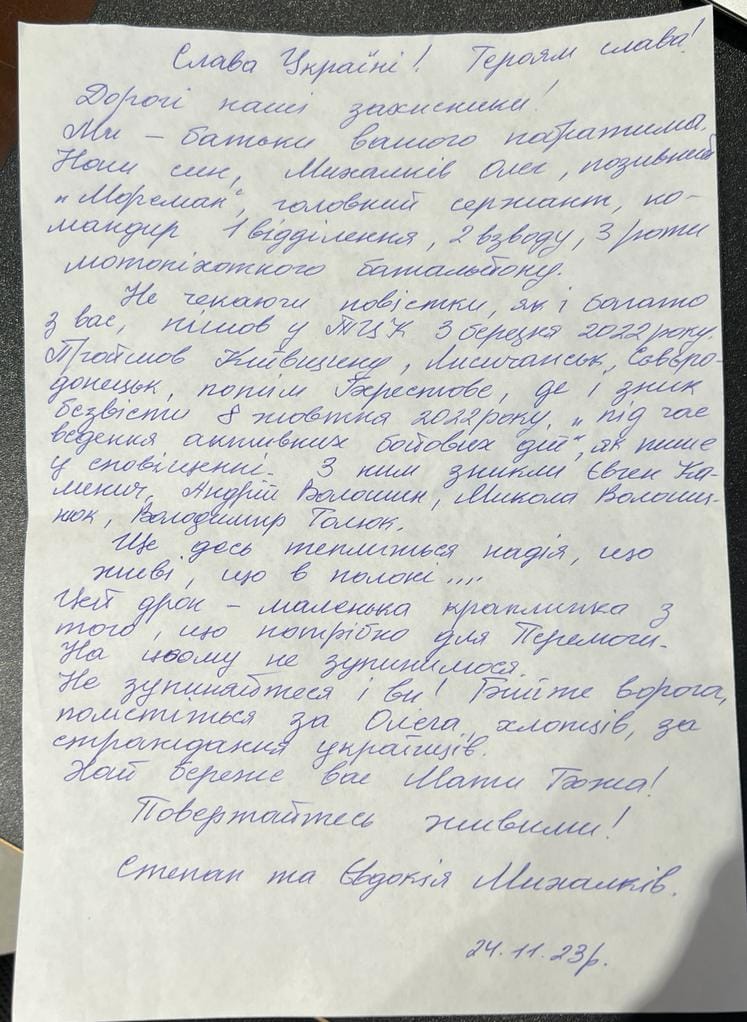 Слава Україні! Героям слава!
Дорогі наші захисники!
Ми – батьки вашого побратима.
син, Михалків Олег, позивний
„Морeман", головний сержант, ко-
мандир 1 відділення, 2 взводу, 3 роти
мотопіхотного батальйону.
Не чекаючи повістки, як і багато
з вас, пішов у ТЦК 3 березня 2022 року.
Пройшов Київщину, Лисичанськ, Сєвєро-
донецьк, потім Берестове, де і зник
безвісти 8 жовтня 2022 року, „під час
ведення активних бойових дій", як пише
у сповіщенні. З ним зникли Євген Ка-
менич, Андрій Волошин, Микола Волощ-
нюк, Володимир Толюк.
Ще дось теплиться надія, що
живі, що в полоні....
Цей дрон – маленька краплинка з
того, що потрібно для Перемоги.
На цьому не зупинимося.
Не зупиняйтеся і ви! Бийте ворога,
помстіться за Олега, хлопців, за
страждання українців.
Хай береже вас Мати Божа!
Повертайтесь живими!
Степан та Євдокія Михалків.
24.11.23р.